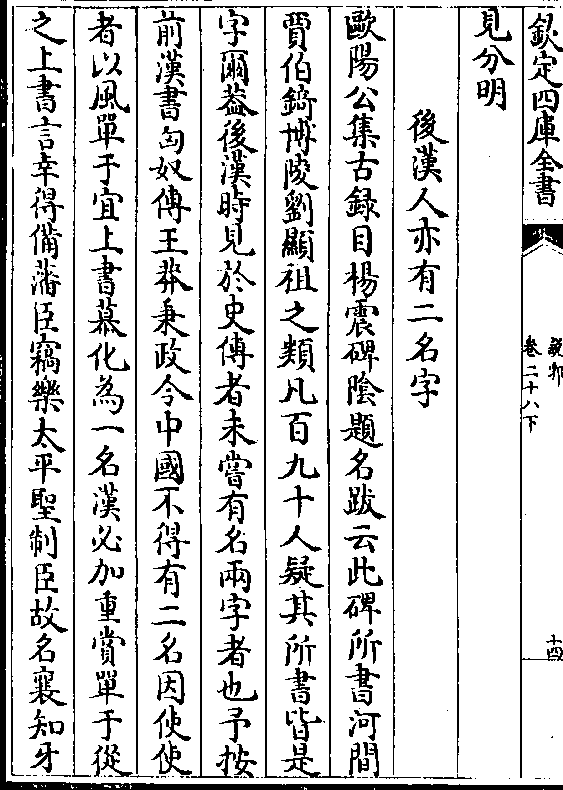 欽定四庫全書
說郛
卷二十八下
十四
見分明
後漢人亦有二名字
歐陽公集古録目楊震碑隂題名跋云此碑所書河間
賈伯錡博陵劉顯祖之類凡百九十人疑其所書皆是
字爾葢後漢時見於史傳者未嘗有名兩字者也予按
前漢書匈奴傳王莽秉政令中國不得有二名因使使
者以風單于宜上書慕化為一名漢必加重賞單于從
之上書言幸得備藩臣竊樂太平聖制臣故名襄知牙